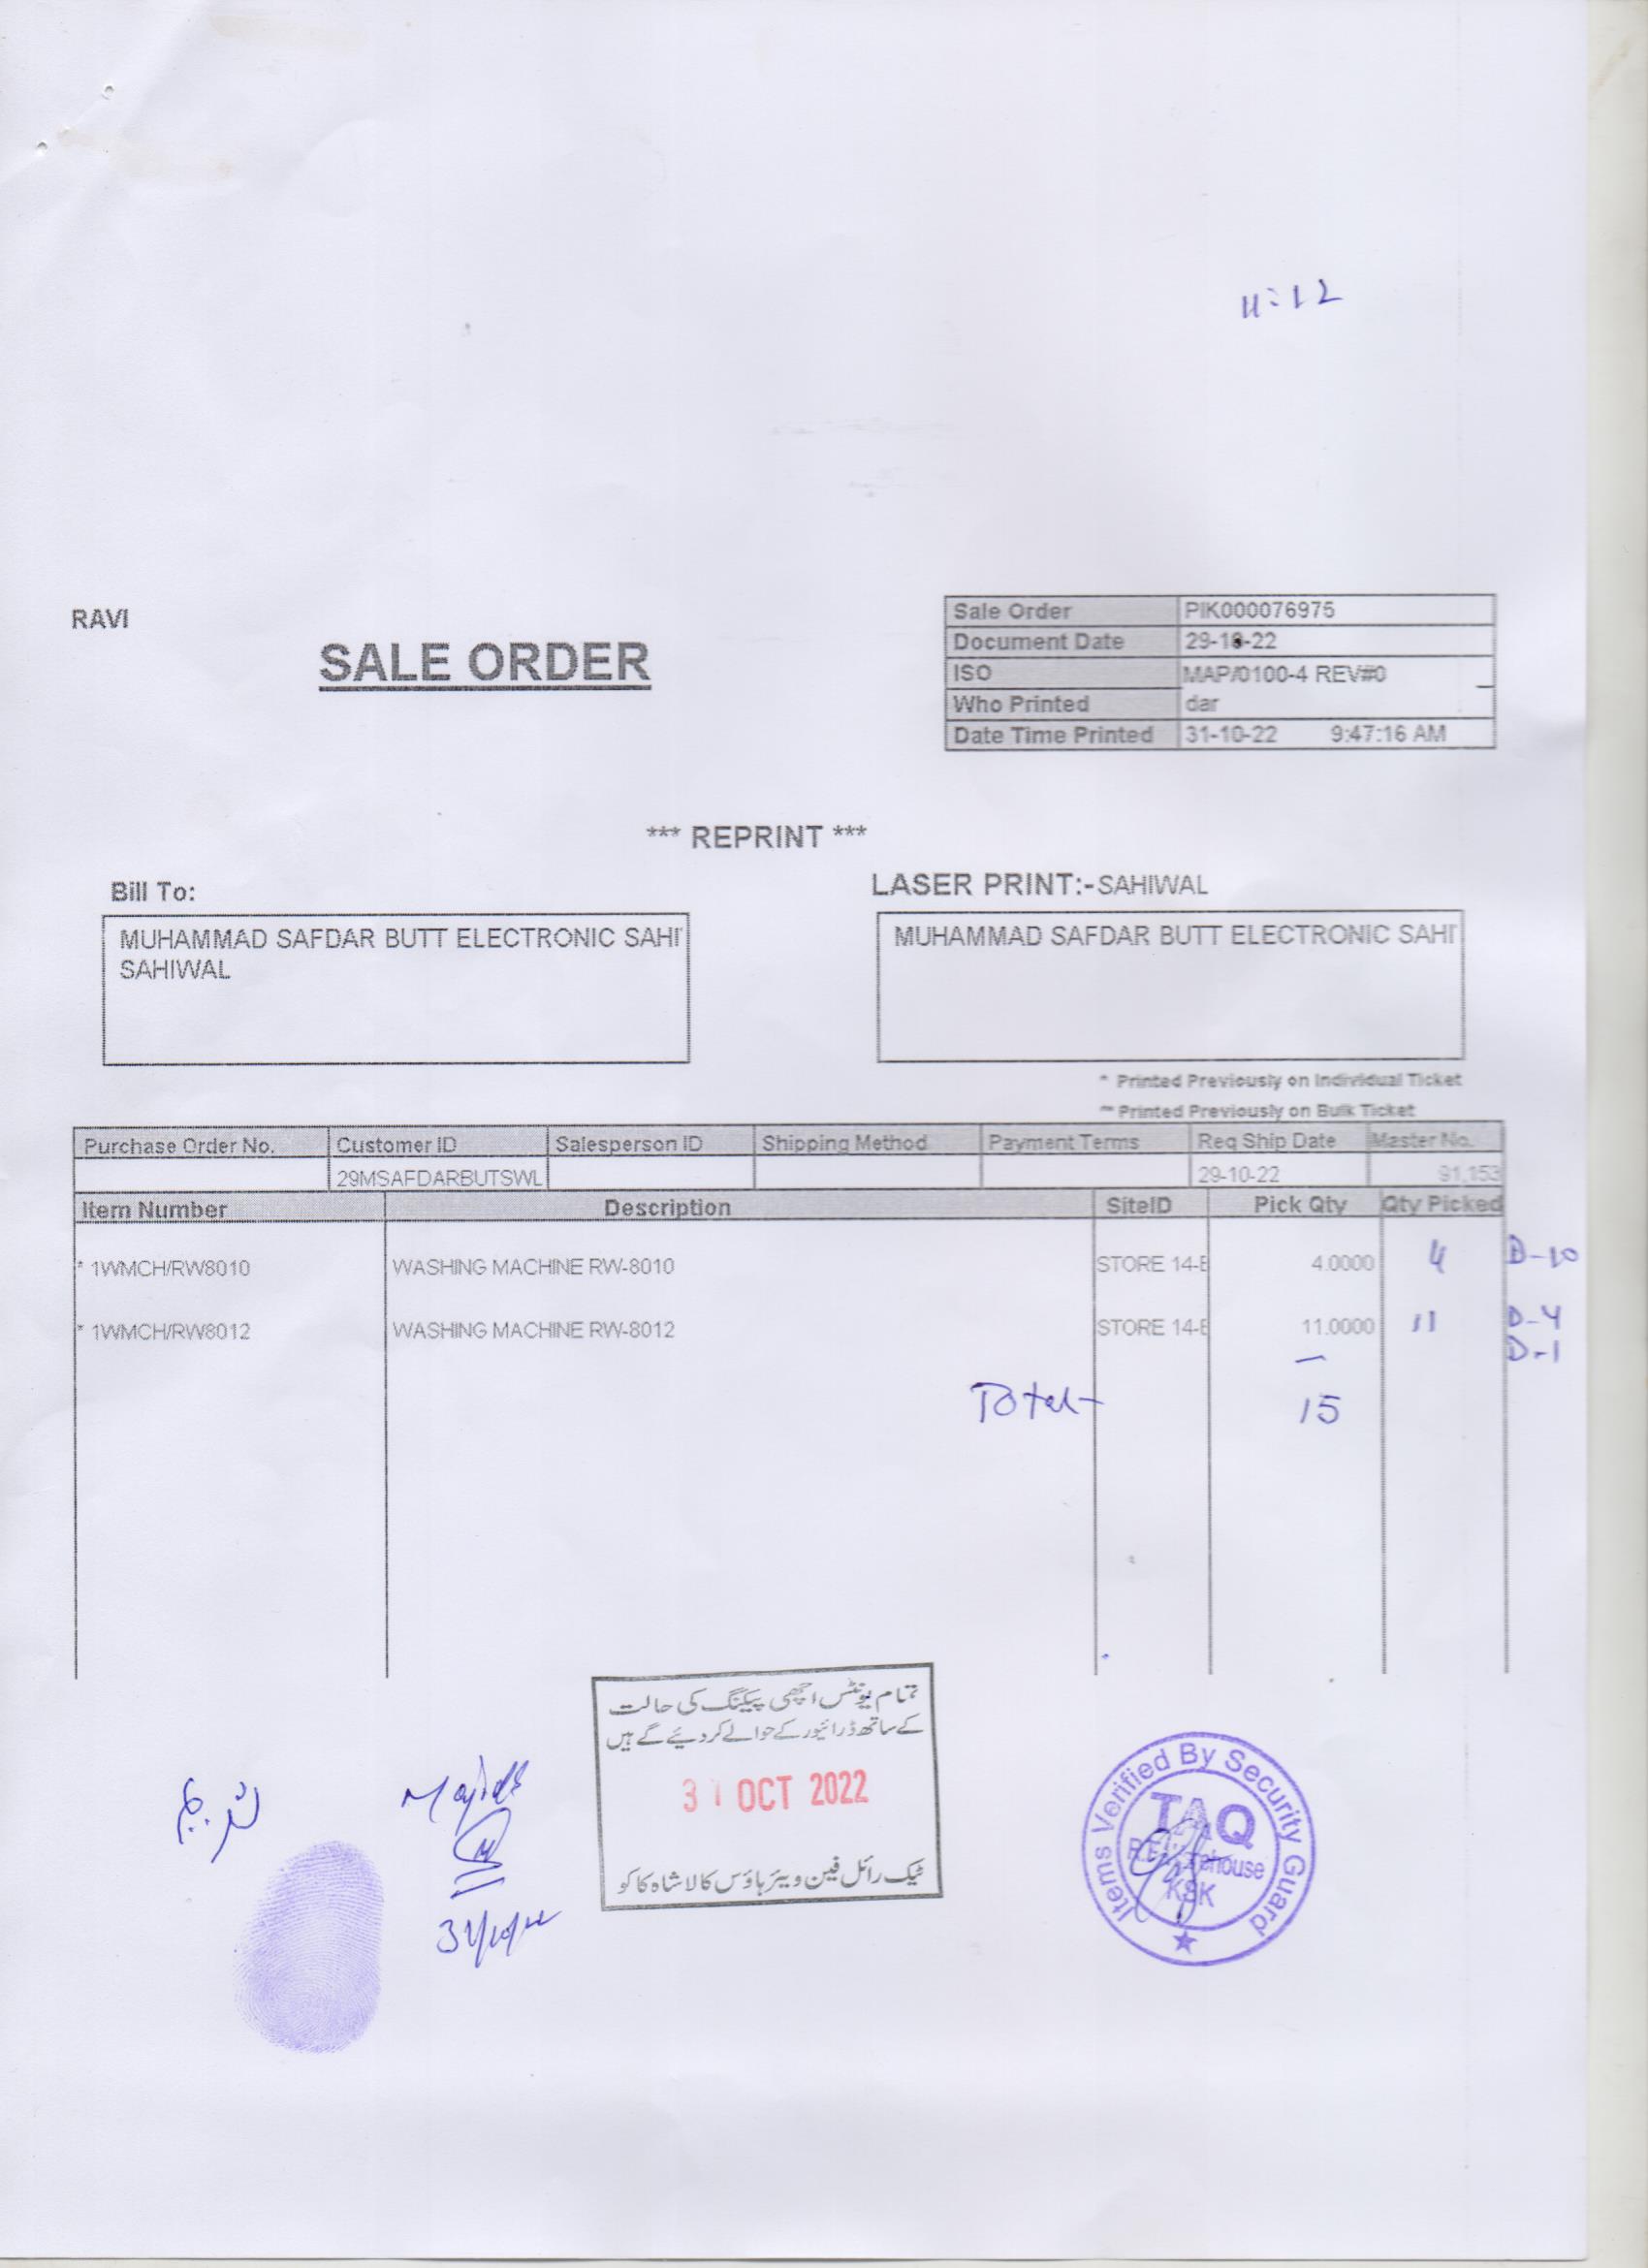 11:12
RAVI
SALE ORDER
Sale Order PIK000076975
Document Date 29-10-22
ISO MAP/0100-4 REV#0
Who Printed dar
Date Time Printed 31-10-22 9:47:16 AM
*** REPRINT ***
Bill To:
MUHAMMAD SAFDAR BUTT ELECTRONIC SAHI
SAHIWAL
LASER PRINT:-SAHIWAL
MUHAMMAD SAFDAR BUTT ELECTRONIC SAHI
* Printed Previously on Individual Ticket
~ Printed Previously on Bulk Ticket
Purchase Order No. Customer ID Salesperson ID Shipping Method Payment Terms Req Ship Date Master No.
29MSAFDARBUTSWL 29-10-22 91,153
Item Number Description SiteID Pick Qty Qty Picked
* 1WMCH/RW8010 WASHING MACHINE RW-8010 STORE 14-E 4.0000 4 D-10
* 1WMCH/RW8012 WASHING MACHINE RW-8012 STORE 14-E 11.0000 11 D-4
D-1
Total 15
تمام یونٹس اچھی پیکنگ کی حالت
کے ساتھ ڈرائیور کے حوالے کر دیئے گے ہیں
31 OCT 2022
ٹیک رائل فین ویئر ہاؤس کالا شاہ کاکو
Majid
31/10/22
Items Verified By Security Guard
TAQ
KSK